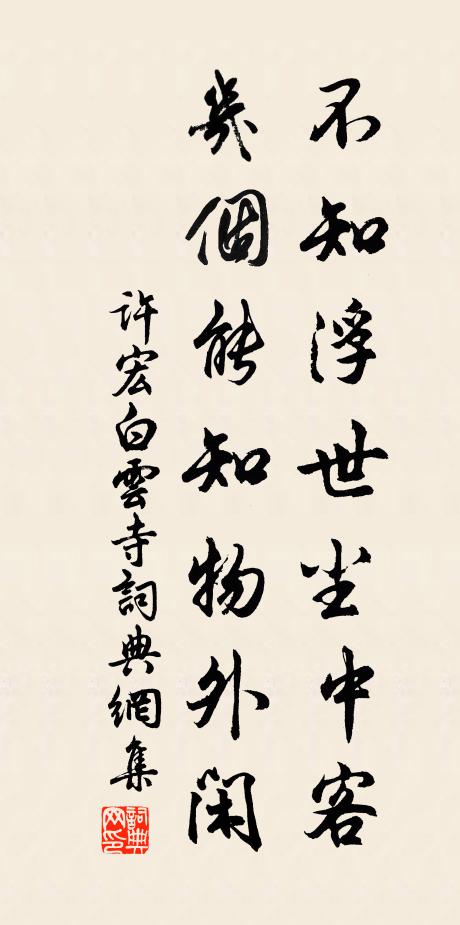 不知浮世尘中客
幾個能知物外閑
許宏白雲寺詞典網集
詞典网印